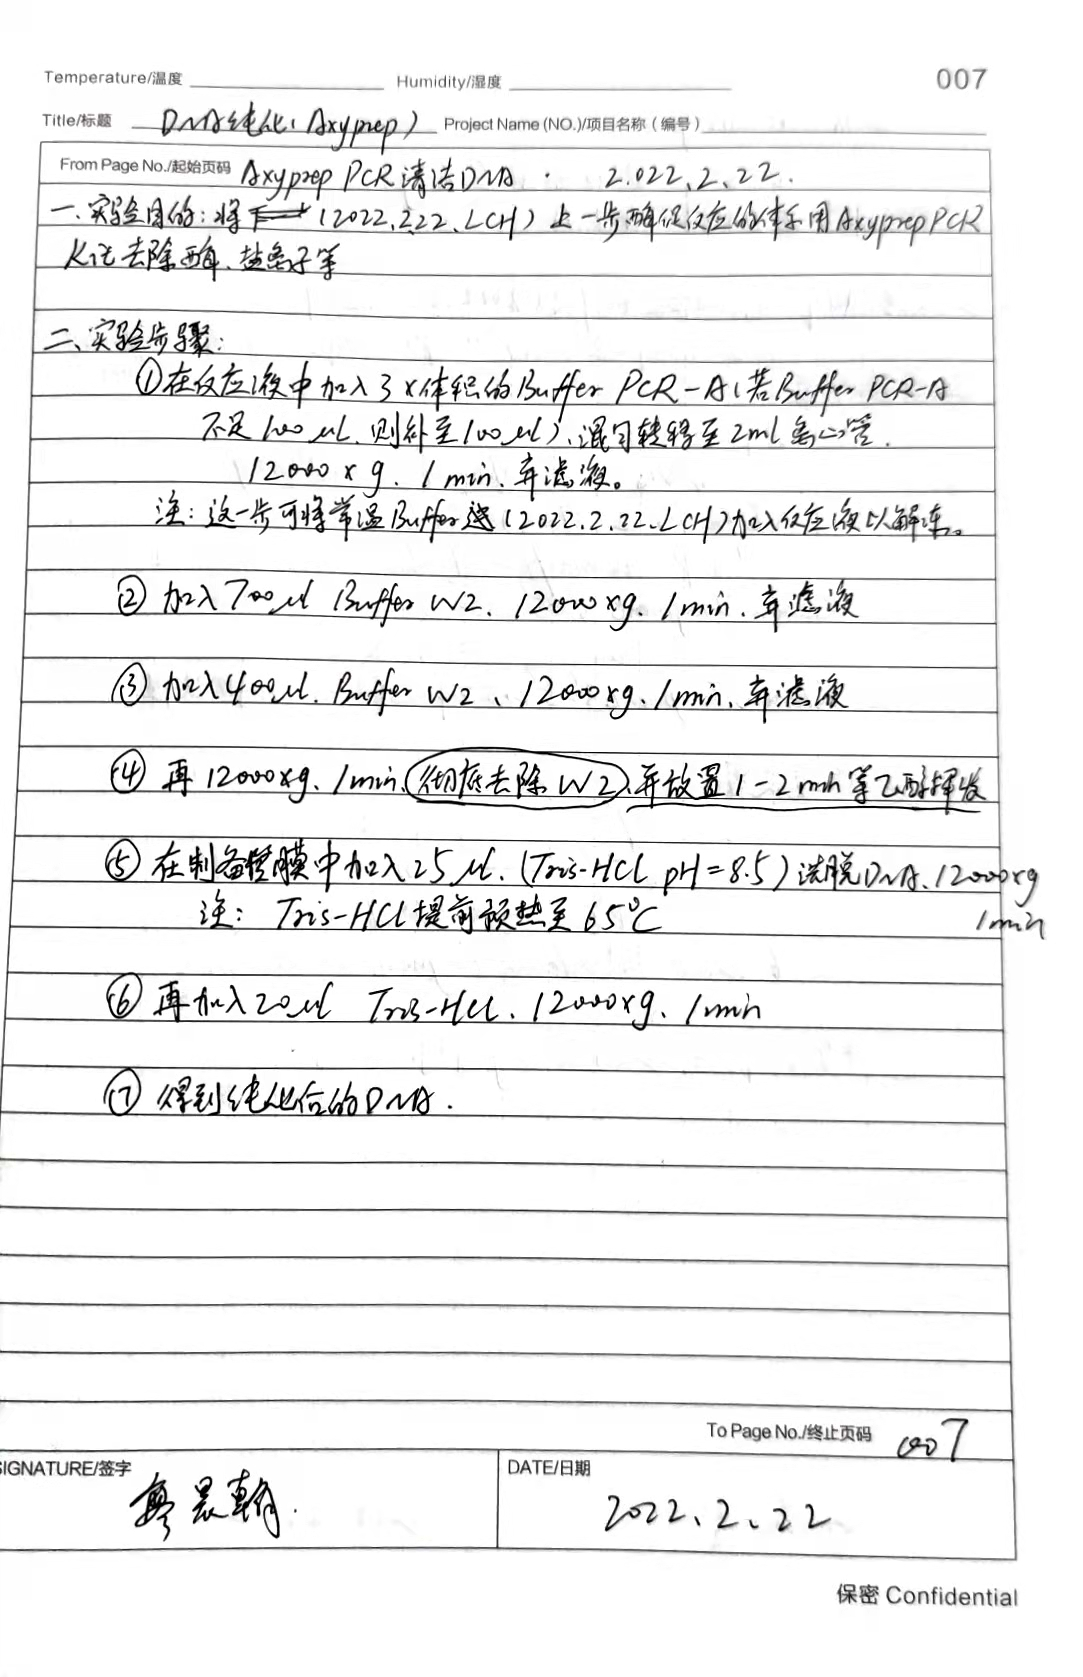 Temperature/温度 Humidity/湿度 007
Title/标题 DNA纯化(Axyprep) Project Name (NO.)/项目名称(编号)
From Page No./起始页码 Axyprep PCR清洁DNA . 2022.2.22.
一、实验目的:将 (2022.2.22. LCH) 上一步酶促反应的体系用AxyprepPCR
Kit去除酶、盐离子等
二、实验步骤:
①在反应液中加入3×体积的Buffer PCR-A(若Buffer PCR-A
不足100μl,则补至100μl)、混匀转移至2ml离心管.
12000×g. 1min、弃滤液。
注:这一步可将常温Buffer (2022.2.22.LCH)加入反应液以解冻。
②加入700μl Buffer W2. 12000×g. 1min. 弃滤液
③加入400μl. Buffer W2、12000×g. 1min. 弃滤液
④再12000×g. 1min.(彻底去除W2)、并放置1-2min等乙醇挥发
⑤在制备管膜中加入25μl. (Tris-HCl pH=8.5)洗脱DNA、12000×g
1min
注: Tris-HCl提前预热至65℃
⑥再加入20μl Tris-HCl. 12000×g. 1min
⑦得到纯化后的DNA.
To Page No./终止页码 007
SIGNATURE/签字 廖晨翰. DATE/日期
2022.2.22
保密 Confidential